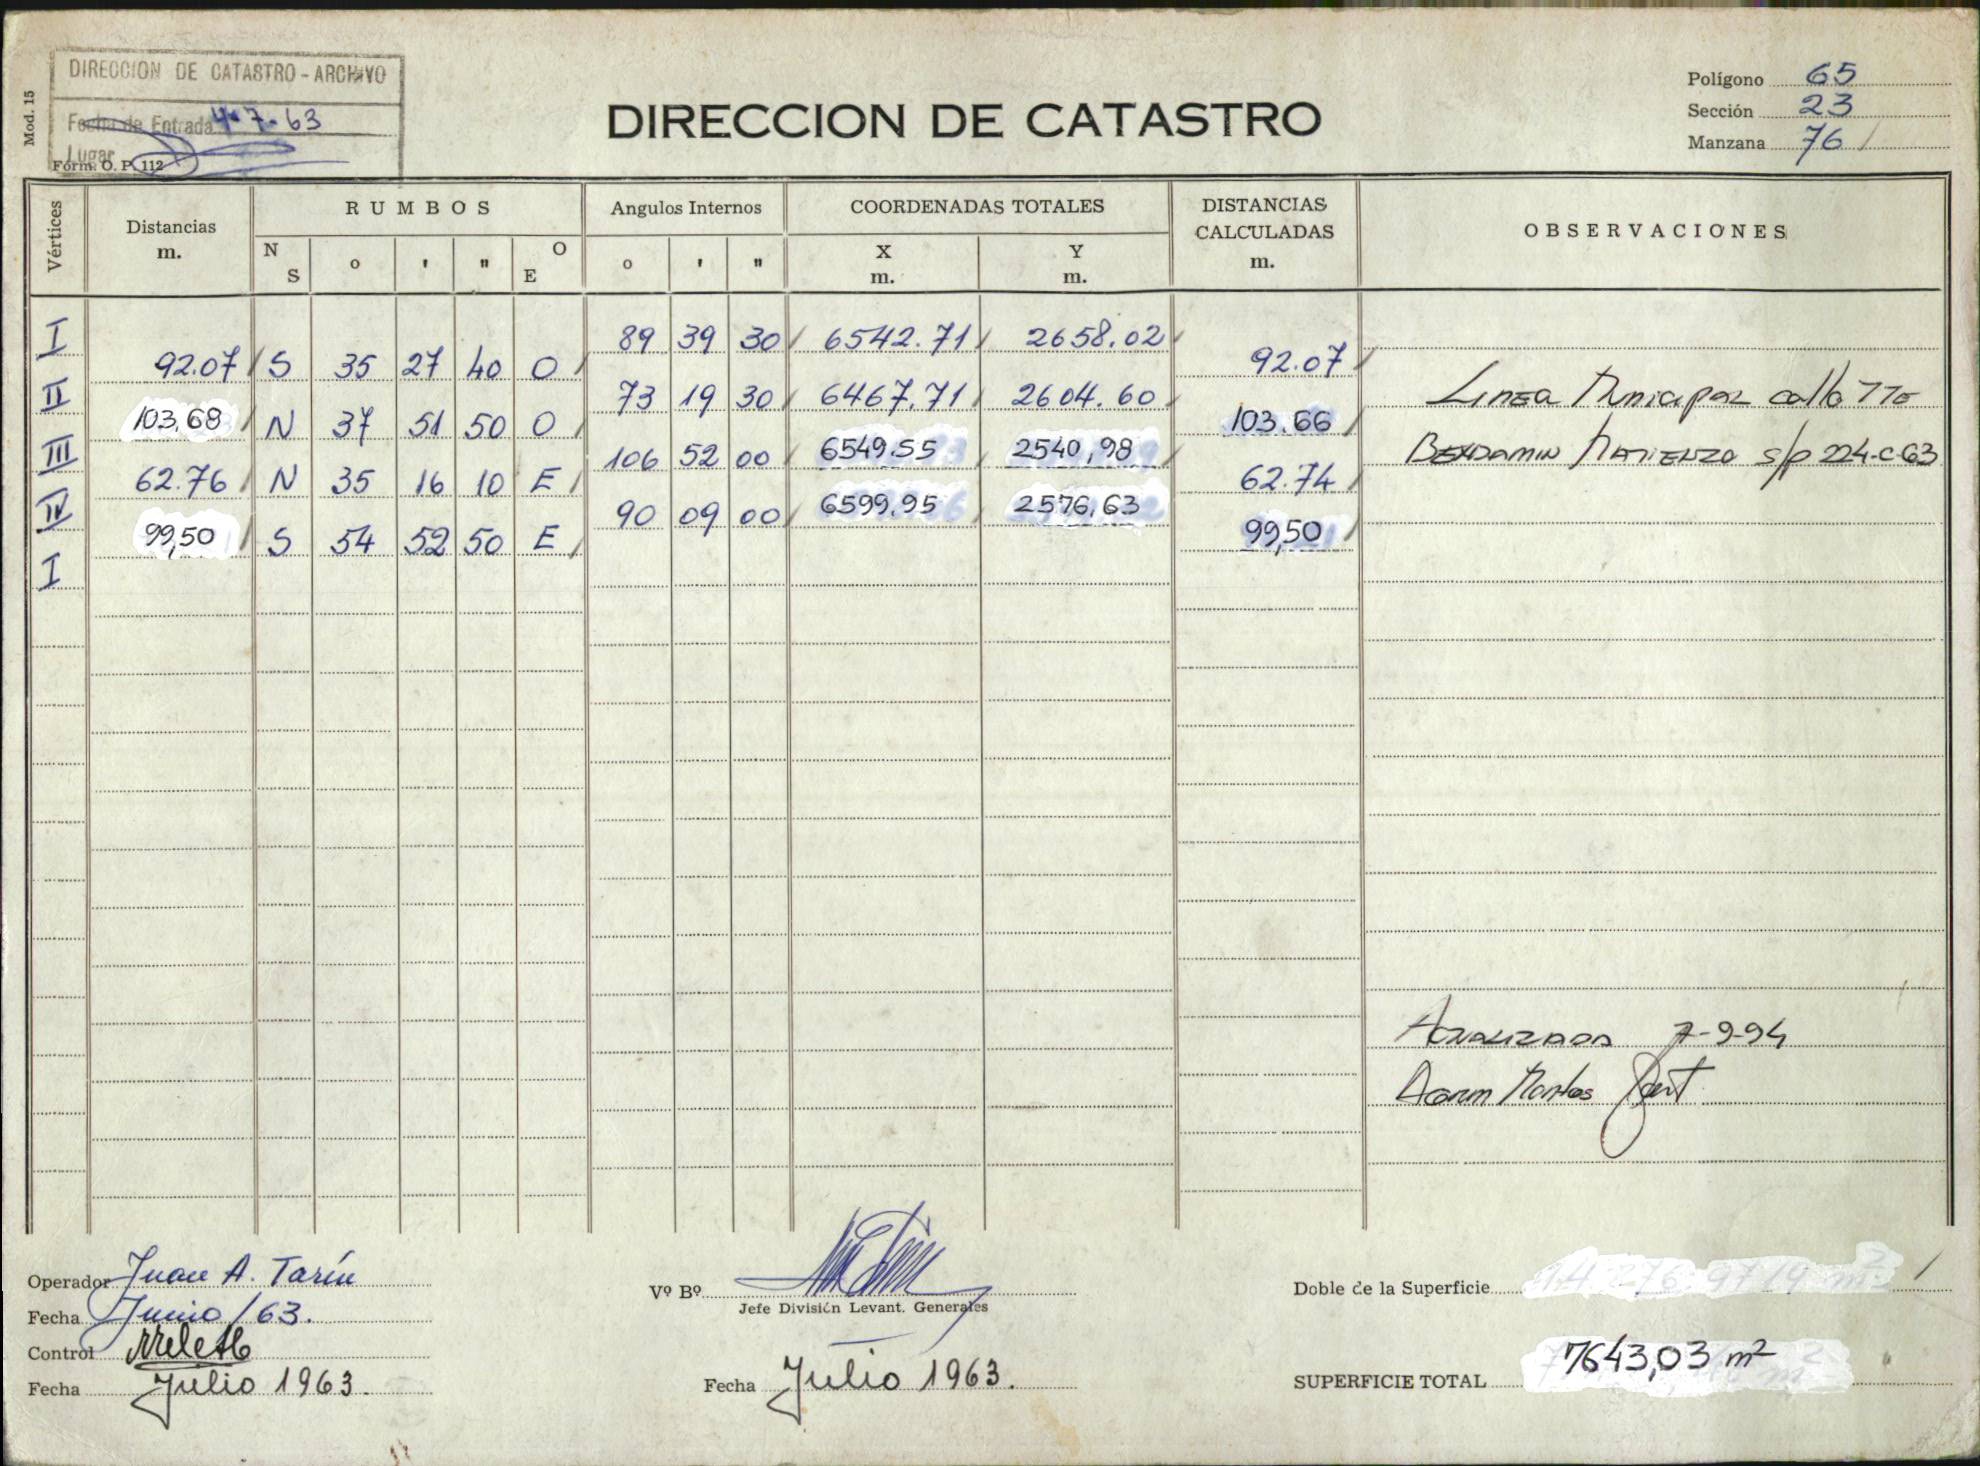 Mod. 15
DIRECCION DE CATASTRO - ARCHIVO
Fecha de Entrada 4-7-63
Lugar
Form. O. P. 112
DIRECCION DE CATASTRO
Polígono 65
Sección 23
Manzana 76
Vértices
Distancias m.
RUMBOS
N S o ' " O E
Angulos Internos
o ' "
COORDENADAS TOTALES
X m. Y m.
DISTANCIAS CALCULADAS m.
OBSERVACIONES
I 89 39 30 6542.71 2658.02
92.07 S 35 27 40 O 92.07
II 73 19 30 6467.71 2604.60
Linea Municipal calle TTE
103,68 N 37 51 50 O 103.66
III 106 52 00 6549.55 2540,98
BENJAMIN MATIENZO s/p 224-C-63
62.76 N 35 16 10 E 62.74
IV 90 09 00 6599,95 2576,63
99,50 S 54 52 50 E 99,50
I
Actualizada 7-9-94
Operador Juan A. Tarín
Fecha Junio/63.
Control
Fecha Julio 1963.
Vº Bº
Jefe División Levant. Generales
Fecha Julio 1963.
Doble de la Superficie
SUPERFICIE TOTAL 7643,03 m²